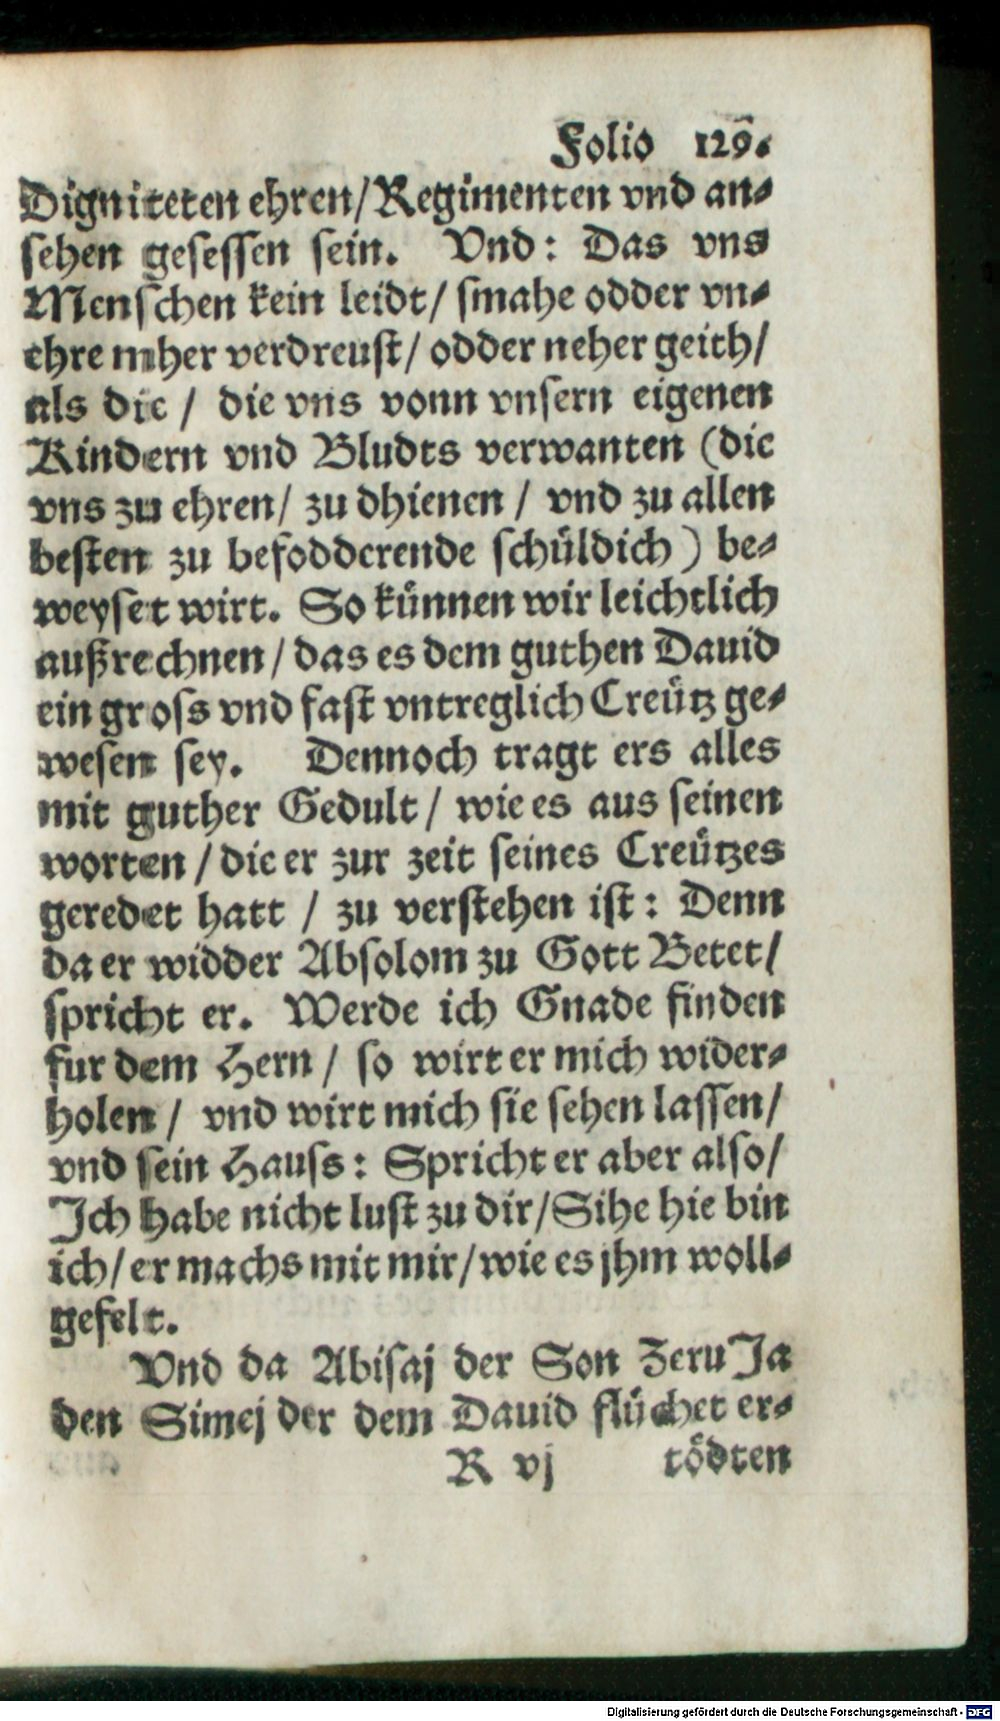 Folio 129.
Digniteten ehren/Regimenten vnd an-
sehen gesessen sein. Vnd: Das vns
Menschen kein leidt/ smahe odder vn-
ehre mher verdreust/ odder neher geith/
als die / die vns vonn vnsern eigenen
Kindern vnd Bludts verwanten (die
vns zu ehren/ zu dhienen / vnd zu allen
besten zu befodderende schüldich) be-
weyset wirt. So künnen wir leichtlich
außrechnen/das es dem guthen Dauid
ein gross vnd fast vntreglich Creütz ge-
wesen sey. Dennoch tragt ers alles
mit guther Gedult / wie es aus seinen
worten /die er zur zeit seines Creützes
geredet hatt / zu verstehen ist: Denn
da er widder Absolom zu Gott Betet/
spricht er. Werde ich Gnade finden
fur dem Hern / so wirt er mich wider-
holen / vnd wirt mich sie sehen lassen/
vnd sein Hauss: Spricht er aber also/
Ich habe nicht lust zu dir/Sihe hie bin
ich/er machs mit mir/wie es jhm woll-
gefelt.
Vnd da Abisaj der Son ZeruJa
den Simej der dem Dauid flüchet er-
R vj tödten
Digitalisierung gefördert durch die Deutsche Forschungsgemeinschaft - DFG